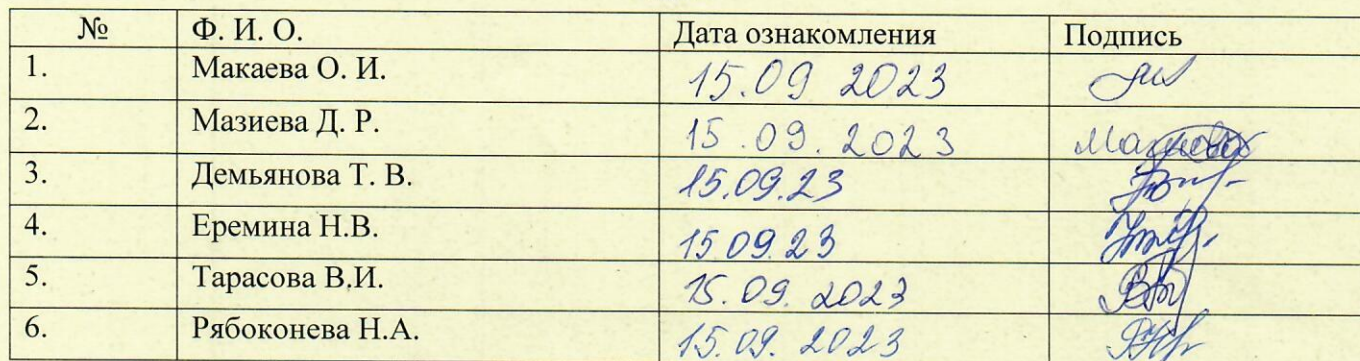 № Ф. И. О. Дата ознакомления Подпись
1. Макаева О. И. 15.09 2023
2. Мазиева Д. Р. 15.09.2023
3. Демьянова Т. В. 15.09.23
4. Еремина Н.В. 15.09.23
5. Тарасова В.И. 15.09.2023
6. Рябоконева Н.А. 15.09.2023